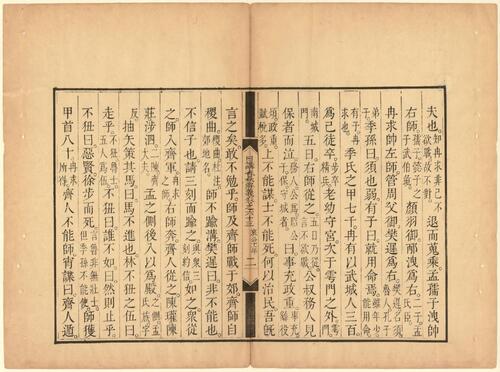 夫也知冉求非己不欲戰故不對退而蒐乘孟孺子洩帥
右師孺子孟懿子之子武伯彘顏羽御邴洩為右二子孟氏臣
冉求帥左師管周父御樊遲為右樊遲名須魯人孔子
弟子季孫曰須也弱有子曰就用命焉雖年少能用命
有子冉求也季氏之甲七千冉有以武城人三百
為己徒卒步卒精兵老幼守宮次于雩門之外雩門
南城門五日右師從之五日乃從言不欲戰公叔務人見
保者而泣務人公為昭公子保守城者曰事充政重事充繇役
煩政重賦稅多上不能謀士不能死何以治民吾既
言之矣敢不勉乎師及齊師戰于郊齊師自
稷曲稷曲郊地名師不踰溝樊遲曰非不能也
不信子也請三刻而踰之與眾三刻約信如之眾從
之師入齊軍冉求之師右師奔齊人從之陳瓘陳
莊涉泗二陳齊大夫孟之側後入以為殿之側孟氏族字反
抽矢策其馬曰馬不進也林不狃之伍曰
走乎不狃魯士五人為伍不狃曰誰不如曰然則止乎
不狃曰惡賢徐步而死言魯非無壯士但季孫不能使師獲
甲首八十冉求所得齊人不能師宵諜曰齊人遁